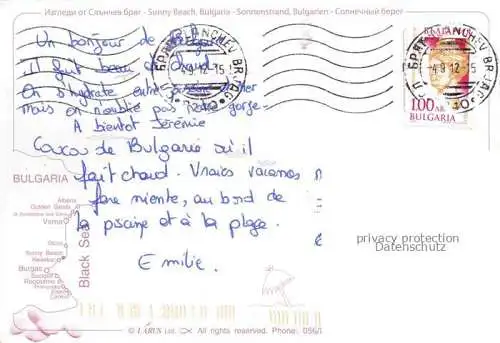 Изгледи от Слънчев бряг - Sunny Beach, Bulgaria - Sonnenstrand, Bulgarien - Солнечный берег
Un bonjour de
il fait beau et chaud.
On s'hydrate entre
mais on n'oublie pas notre gorge.
A bientot Jérémie
Coucou de Bulgarie où il
fait chaud. Vraies vacances
fare niente, au bord de
la piscine et à la plage.
Emilie.
4.9.12-15
4.9.12-15
1.00 ЛВ.
BULGARIA
BULGARIA
Albena
Golden Sands
Varna
Obzor
Sunny Beach
Nesebar
Burgas
Sozopol
Black Sea
privacy protection
Datenschutz
© LARUS Ltd. All rights reserved. Phone: 056/